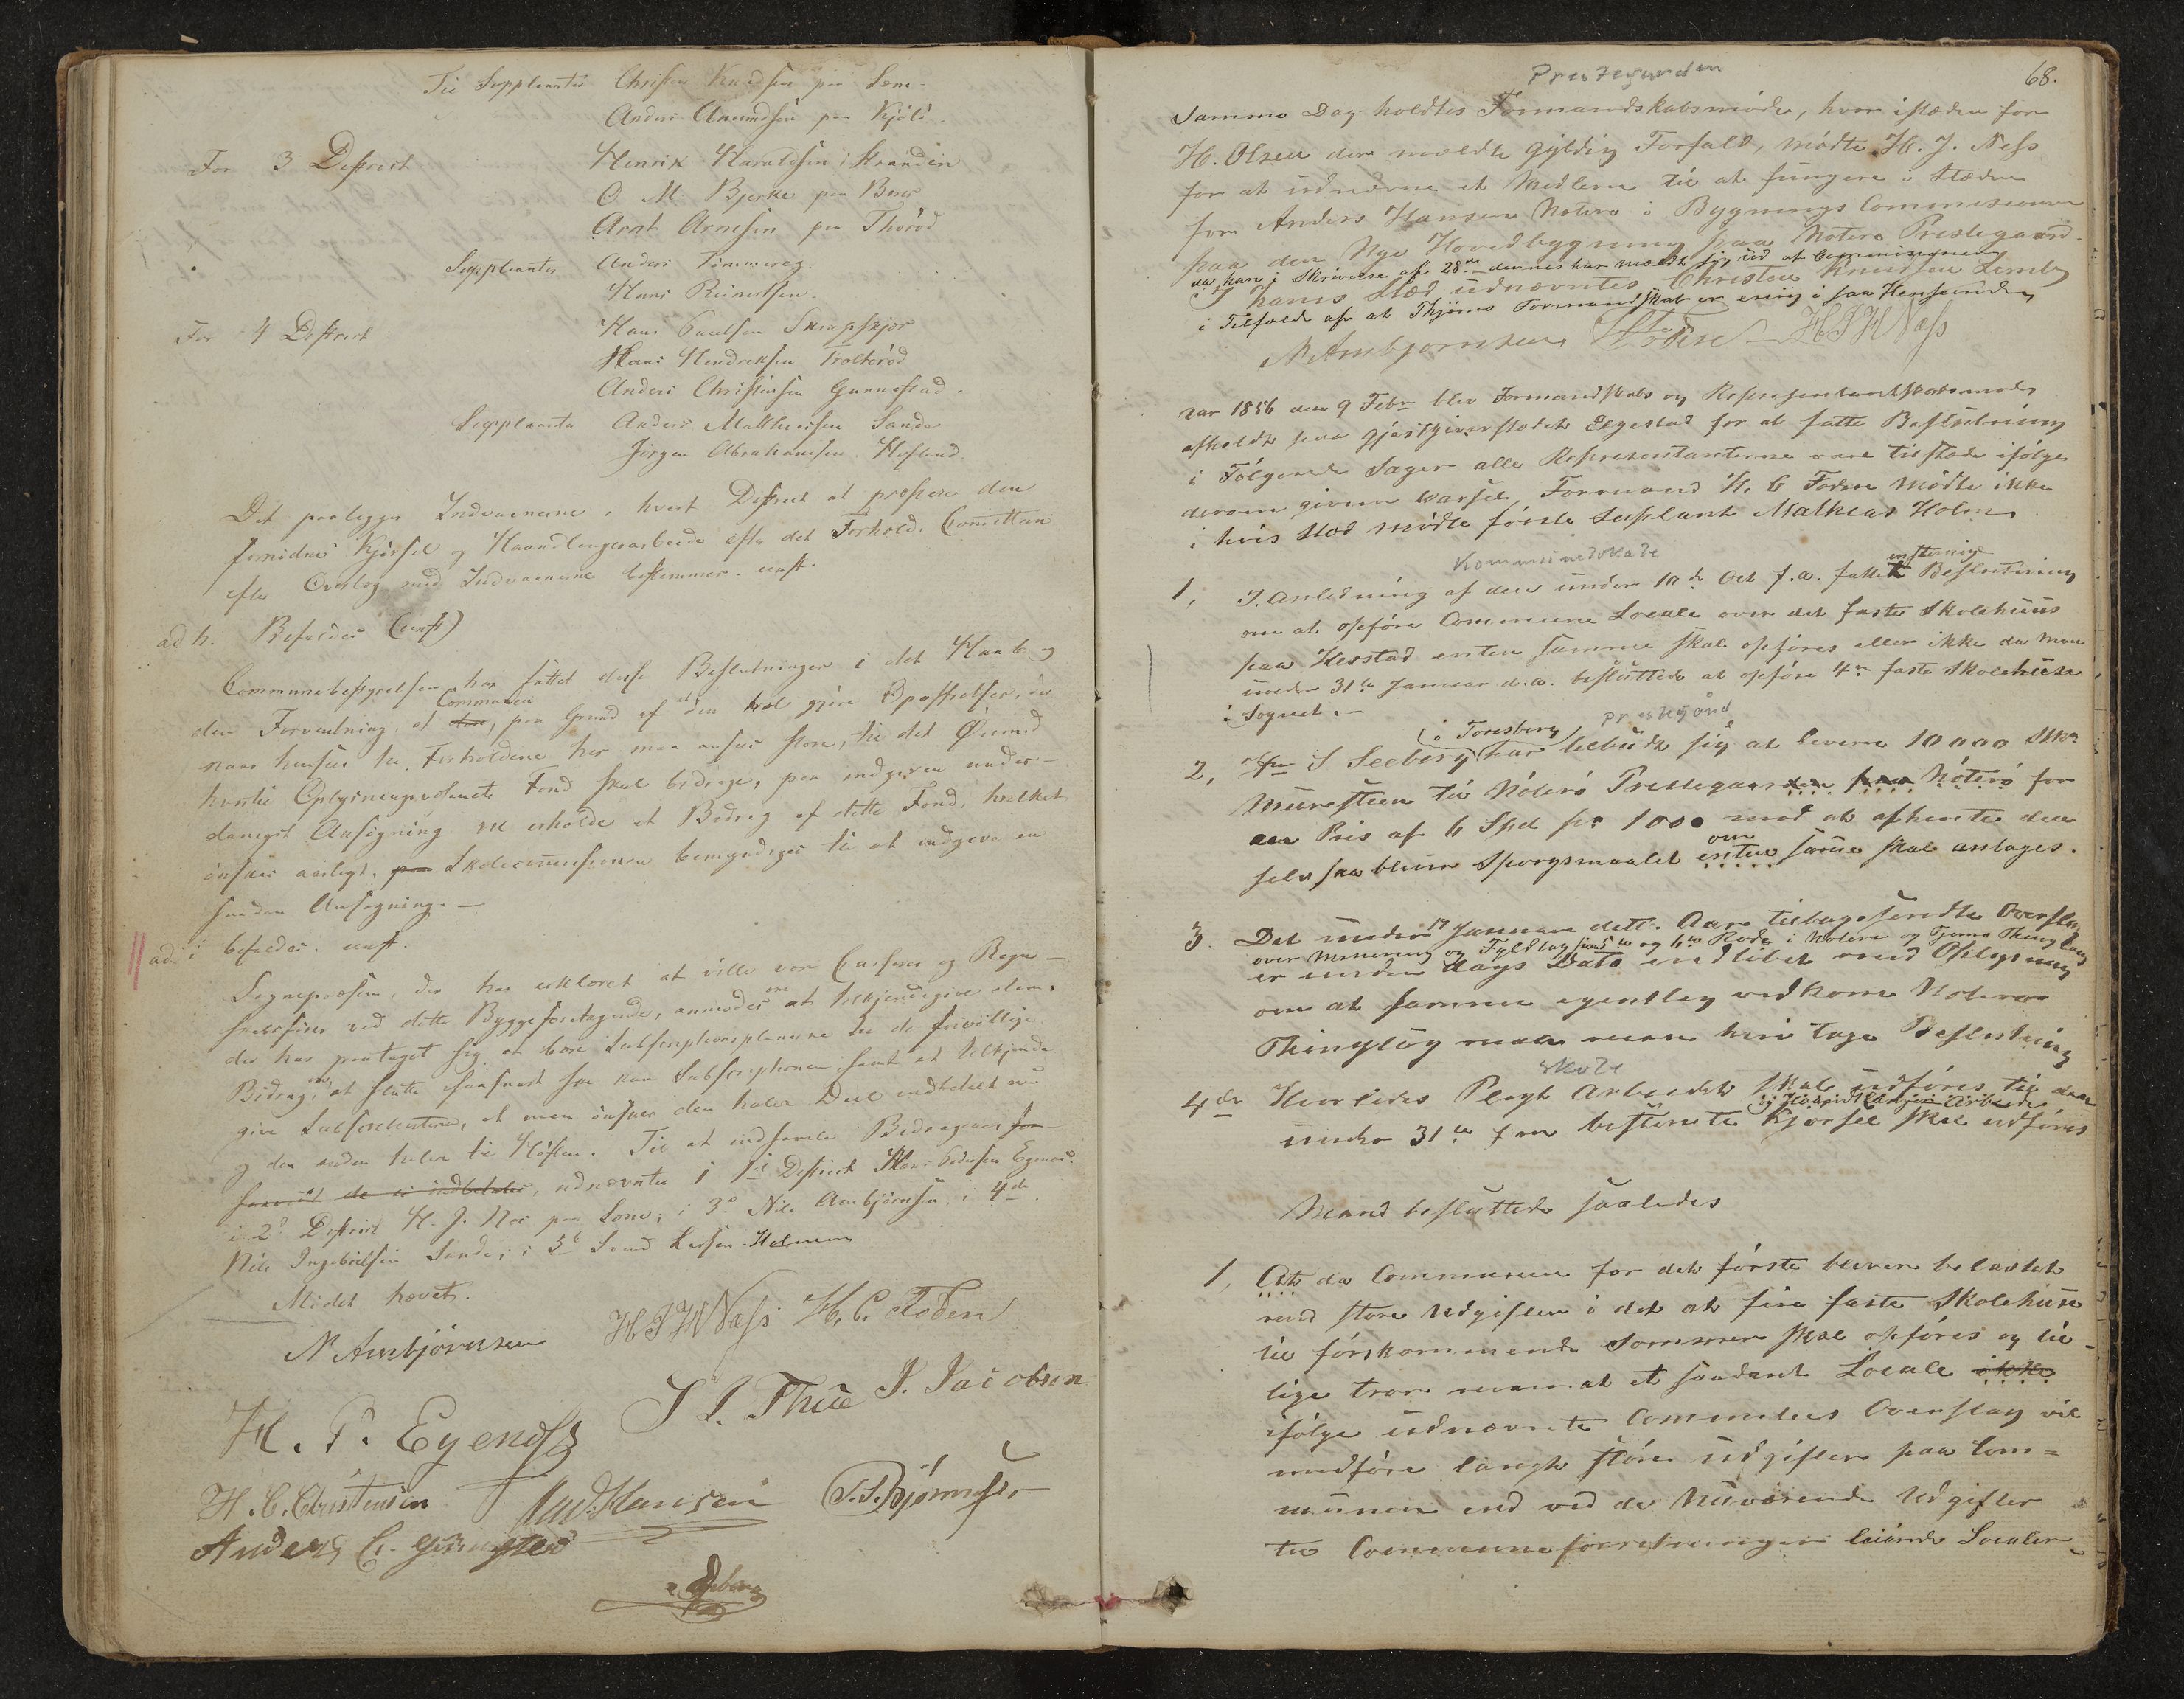 Til Suppleanter Christen Knudsen paa Lem.
Anders Amundsen paa Kjölö.
For 3 Distrect Henrik Haraldsen i Stranden
O. M. Bjerke paa Buer
Arnt Arnesen paa Thoröd
Suppleanter Anders Tömmeraas
Hans
For 4 Distrect Hans Paulsen Skrapskjør
Hans Hendriksen Trolleröd
Anders Christensen Gunnestad.
Suppleanter Anders Mathiesen Sande
Jörgen Abrahamsen Hofland
Det paalegges Indvaanerne i hvert Distrect at præstere den
fornødne Kjörsel og Haandlangerarbeide efter det Forhold, Comitteen
efter Overlæg med Indvaanerne bestemmer. enst.
ad h. Bifaldes (enst)
Communebestyrelsen har fattet disse Beslutninger i det Haab og
den Forventning, at Communen, paa Grund af den skal gjöre Opoffrelser, der
naar hensees til Forholdene her maa ansees store, til det Öiemed
hvortil Oplysningsvæsenets Fond skal bidrage, paa indgiven under-
danigst Ansögning vil erholde et Bidrag af dette Fond, hvilket
önskes aarligt. Skolecommissionen bemyndiges til at indgive en
saadan Ansögning. —
ad i bifaldes. enst.
Sognepræsten, der har erklæret at ville være Casserer og Regn-
skabsförer ved dette Byggeforetagende, anmodes om at tilkjendegive dem,
der har paataget sig at bære Subscriptionsplanerne til de frivillige
Bidrag, om at slutte saasnart ske kan Subscriptionen samt at tilkjende
give Subscribenterne, at man önsker den halve Deel indbetalt nu
og den anden halve til Hösten. Til at indsamle Bidragene
udnævntes i 1ste Distrect Hans Pedersen Egenæs.
i 2d Distrect H. J. Næs paa Lone; i 3d Nils Ambjörnsen i 4de
Nils Ingebretsen Sande; i Lars Larsen Holmen
Mödet hævet.
N Ambjörnsen H J H Næss H. C. Foden
H. P. Eyenæss J L. Thue J. Jacobsen
H. C. Christensen And. Hansen P. P. Bjönness
Anders C. Gunnestad
Seeberg
Prestegarden 68.
Samme Dag holdtes Formandskabsmöde, hvor istæden for
H. Olsen der meldte gyldig Forfald, mödte H. J. Ness
for at udnævne et Medlem til at fungere i Stæden
for Anders Hansen Noterö i Bygnings Commissionen
paa den Nye Hovedbygning paa Noterö Prestegaard.
da han i Skrivelse af 28de dennes har meldt sig ud af Commissionen
I hans Sted udnævntes Christen Knudsen Lemby
i Tilfælde af at Thjömö Formandskab er enig i saa Henseende
N Ambjornsen Foden H J H Næss
Aar 1856 den 9 Febr blev Formandskabs og Representantskabsmöde
afholdt paa Gjæstgiverstedet Elgestad for at fatte Beslutning
i Fölgende Sager alle Representanterne vare tilstæde ifölge
derom given Varsel, Formand H. C Foden mödte ikke
i hvis Sted mödte förste Suplant Mathias Holmen.
Kommunelokale
1, I Anledning af den under 10de Oct f. a. fattet enstemig Beslutning
om at opföre Commune Locale over det faste Skolehuus
paa Herstad enten samme skal opföres eller ikke da Man
under 31te Januar d. a. besluttede at opföre 4re faste Skolehuse
i Sognet. —
prestegård
2, S Seeberg (i Tonsberg) har tilbudt sig at levere 10000
Muursteen til Nöterö Prestegaarden paa Nöterö for
en Pris af 6 Spd pr 1000 mod at afhente den
selv saa bliver Spörgsmaalet enten om samme skal antages.
3. Det under 17 Januar dette Aar tilbagesendte Overslag
over Minering og Fyldlægning 10 og 11te Rode i Noterö og Tjömö Thinglaug
er under Dags Dato indlöbet med Oplysning
om at samme egentlig vedkom Noterö
Thinglaug maa man hvi tage Beslutning
skole
4de Hvorledes Pligt Arbeidet skal udföres til den
under 31te f m bestemte Kjörsel og Haandlanger Arbeide skal udföres
Mand besluttede saaledes
1, At da Communen for det förste bliver belastet
med store Udgifter i det at fire faste Skolehuse
til förstkommende Sommer skal opföres og til-
lige tror man at et saadant Locale ikke
ifölge udnævnte Commitees Overslag vil
medföre langt större Udgifter paa Com=
munen end ved de Nuværende Udgifter
til Communeforretninger leiende Localer